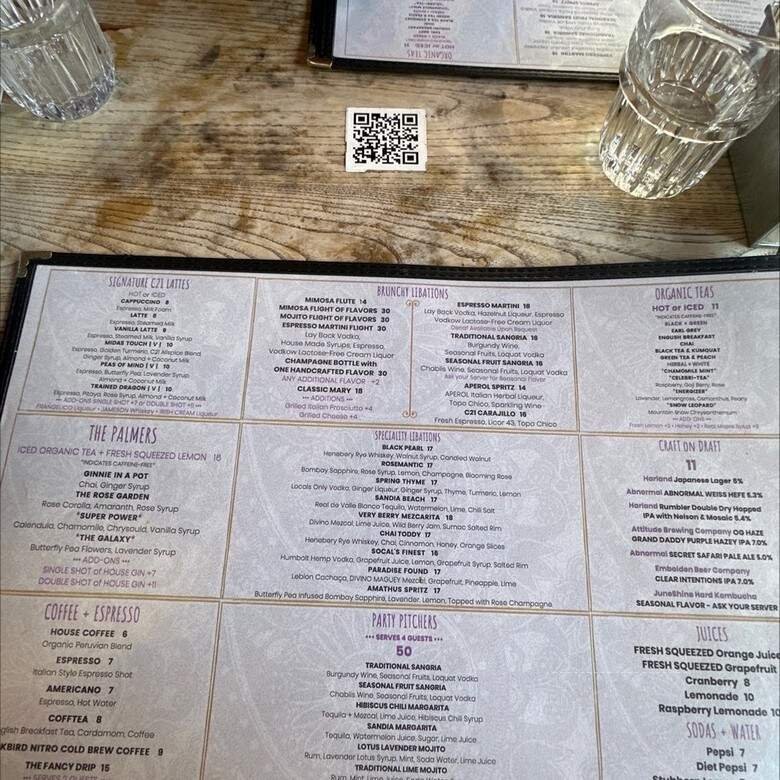 ORGANIC TEAS
HOT or ICED 11
SIGNATURE C21 LATTES
HOT or ICED
CAPPUCCINO 8
Espresso, Milk Foam
LATTE 8
Espresso, Steamed Milk
VANILLA LATTE 9
Espresso, Steamed Milk, Vanilla Syrup
MIDAS TOUCH [ V ] 10
Espresso, Golden Turmeric, C21 Allspice Blend
Ginger Syrup, Almond + Coconut Milk
PEAS OF MIND [ V ] 10
Espresso, Butterfly Pea, Lavender Syrup
Almond + Coconut Milk
TRAINED DRAGON [ V ] 10
Espresso, Pitaya, Rose Syrup, Almond + Coconut Milk
BRUNCHY LIBATIONS
MIMOSA FLUTE 14
MIMOSA FLIGHT OF FLAVORS 30
MOJITO FLIGHT OF FLAVORS 30
ESPRESSO MARTINI FLIGHT 30
Lay Back Vodka,
House Made Syrups, Espresso,
Vodkow Lactose-Free Cream Liquor
CHAMPAGNE BOTTLE with
ONE HANDCRAFTED FLAVOR 30
ANY ADDITIONAL FLAVOR +2
CLASSIC MARY 18
••• ADDITIONS •••
Grilled Italian Prosciutto +4
Grilled Cheese +4
ESPRESSO MARTINI 18
Lay Back Vodka, Hazelnut Liqueur, Espresso
Vodkow Lactose-Free Cream Liquor
Decaf Available Upon Request
TRADITIONAL SANGRIA 16
Burgundy Wine,
Seasonal Fruits, Loquat Vodka
SEASONAL FRUIT SANGRIA 16
Chablis Wine, Seasonal Fruits, Loquat Vodka
Ask your Server for Seasonal Flavor
APEROL SPRITZ 14
APEROL Italian Herbal Liqueur,
Topo Chico, Sparkling Wine
C21 CARAJILLO 16
Fresh Espresso, Licor 43, Topo Chico
ORGANIC TEAS
HOT or ICED 11
*INDICATES CAFFEINE-FREE*
BLACK + GREEN
EARL GREY
ENGLISH BREAKFAST
CHAI
BLACK TEA & KUMQUAT
GREEN TEA & PEACH
HERBAL + WHITE
"CHAMOMILE MINT"
"CELEBRI-TEA"
Raspberry, Goji Berry, Rose
"ENERGIZER"
Lavender, Lemongrass, Osmanthus, Peony
"SNOW LEOPARD"
Mountain Snow Chrysanthemum
THE PALMERS
ICED ORGANIC TEA + FRESH SQUEEZED LEMON 16
*INDICATES CAFFEINE-FREE*
GINNIE IN A POT
Chai, Ginger Syrup
THE ROSE GARDEN
Rose Corolla, Amaranth, Rose Syrup
*SUPER POWER*
Calendula, Chamomile, Chrysauld, Vanilla Syrup
*THE GALAXY*
Butterfly Pea Flowers, Lavender Syrup
••• ADD-ONS •••
SINGLE SHOT of HOUSE GIN +7
DOUBLE SHOT of HOUSE GIN +11
SPECIALITY LIBATIONS
BLACK PEARL 17
Henebery Rye Whiskey, Walnut Syrup, Candied Walnut
ROSEMANTIC 17
Bombay Sapphire, Rose Syrup, Lemon, Champagne, Blooming Rose
SPRING THYME 17
Locals Only Vodka, Ginger Liqueur, Ginger Syrup, Thyme, Turmeric, Lemon
SANDIA BEACH 17
Real de Valle Blanco Tequila, Watermelon, Lime, Chili Salt
VERY BERRY MEZCARITA 18
Divino Mezcal, Lime Juice, Wild Berry Jam, Sumac Salted Rim
CHAI TODDY 17
Henebery Rye Whiskey, Chai, Cinnamon, Honey, Orange Slices
SOCAL'S FINEST 18
Humbolt Hemp Vodka, Grapefruit Juice, Lemon, Grapefruit Syrup, Salted Rim
PARADISE FOUND 17
Leblon Cachaça, DIVINO MAGUEY Mezcal, Grapefruit, Pineapple, Lime
AMATHUS SPRITZ 17
Butterfly Pea Infused Bombay Sapphire, Lavender, Lemon, Topped with Rose Champagne
CRAFT ON DRAFT
11
Harland Japanese Lager 5%
Abnormal ABNORMAL WEISS HEFE 5.3%
Harland Rumbler Double Dry Hopped
IPA with Nelson & Mosaic 5.4%
Attitude Brewing Company OG HAZE
GRAND DADDY PURPLE HAZEY IPA 7.0%
Abnormal SECRET SAFARI PALE ALE 5.0%
Embolden Beer Company
CLEAR INTENTIONS IPA 7.0%
JuneShine Hard Kombucha
SEASONAL FLAVOR - ASK YOUR SERVER
COFFEE + ESPRESSO
HOUSE COFFEE 6
Organic Peruvian Blend
ESPRESSO 7
Italian Style Espresso Shot
AMERICANO 7
Espresso, Hot Water
COFFTEA 8
glish Breakfast Tea, Cardamom, Coffee
KBIRD NITRO COLD BREW COFFEE 9
THE FANCY DRIP 15
PARTY PITCHERS
••• SERVES 4 GUESTS •••
50
TRADITIONAL SANGRIA
Burgundy Wine, Seasonal Fruits, Loquat Vodka
SEASONAL FRUIT SANGRIA
Chablis Wine, Seasonal Fruits, Loquat Vodka
HIBISCUS CHILI MARGARITA
Tequila + Mezcal, Lime Juice, Hibiscus Chili Syrup
SANDIA MARGARITA
Tequila, Watermelon Juice, Sugar, Lime Juice
LOTUS LAVENDER MOJITO
Rum, Lavender Syrup, Mint, Soda Water, Lime Juice
TRADITIONAL LIME MOJITO
JUICES
FRESH SQUEEZED Orange Juice
FRESH SQUEEZED Grapefruit
Cranberry 8
Lemonade 10
Raspberry Lemonade 10
SODAS + WATER
Pepsi 7
Diet Pepsi 7